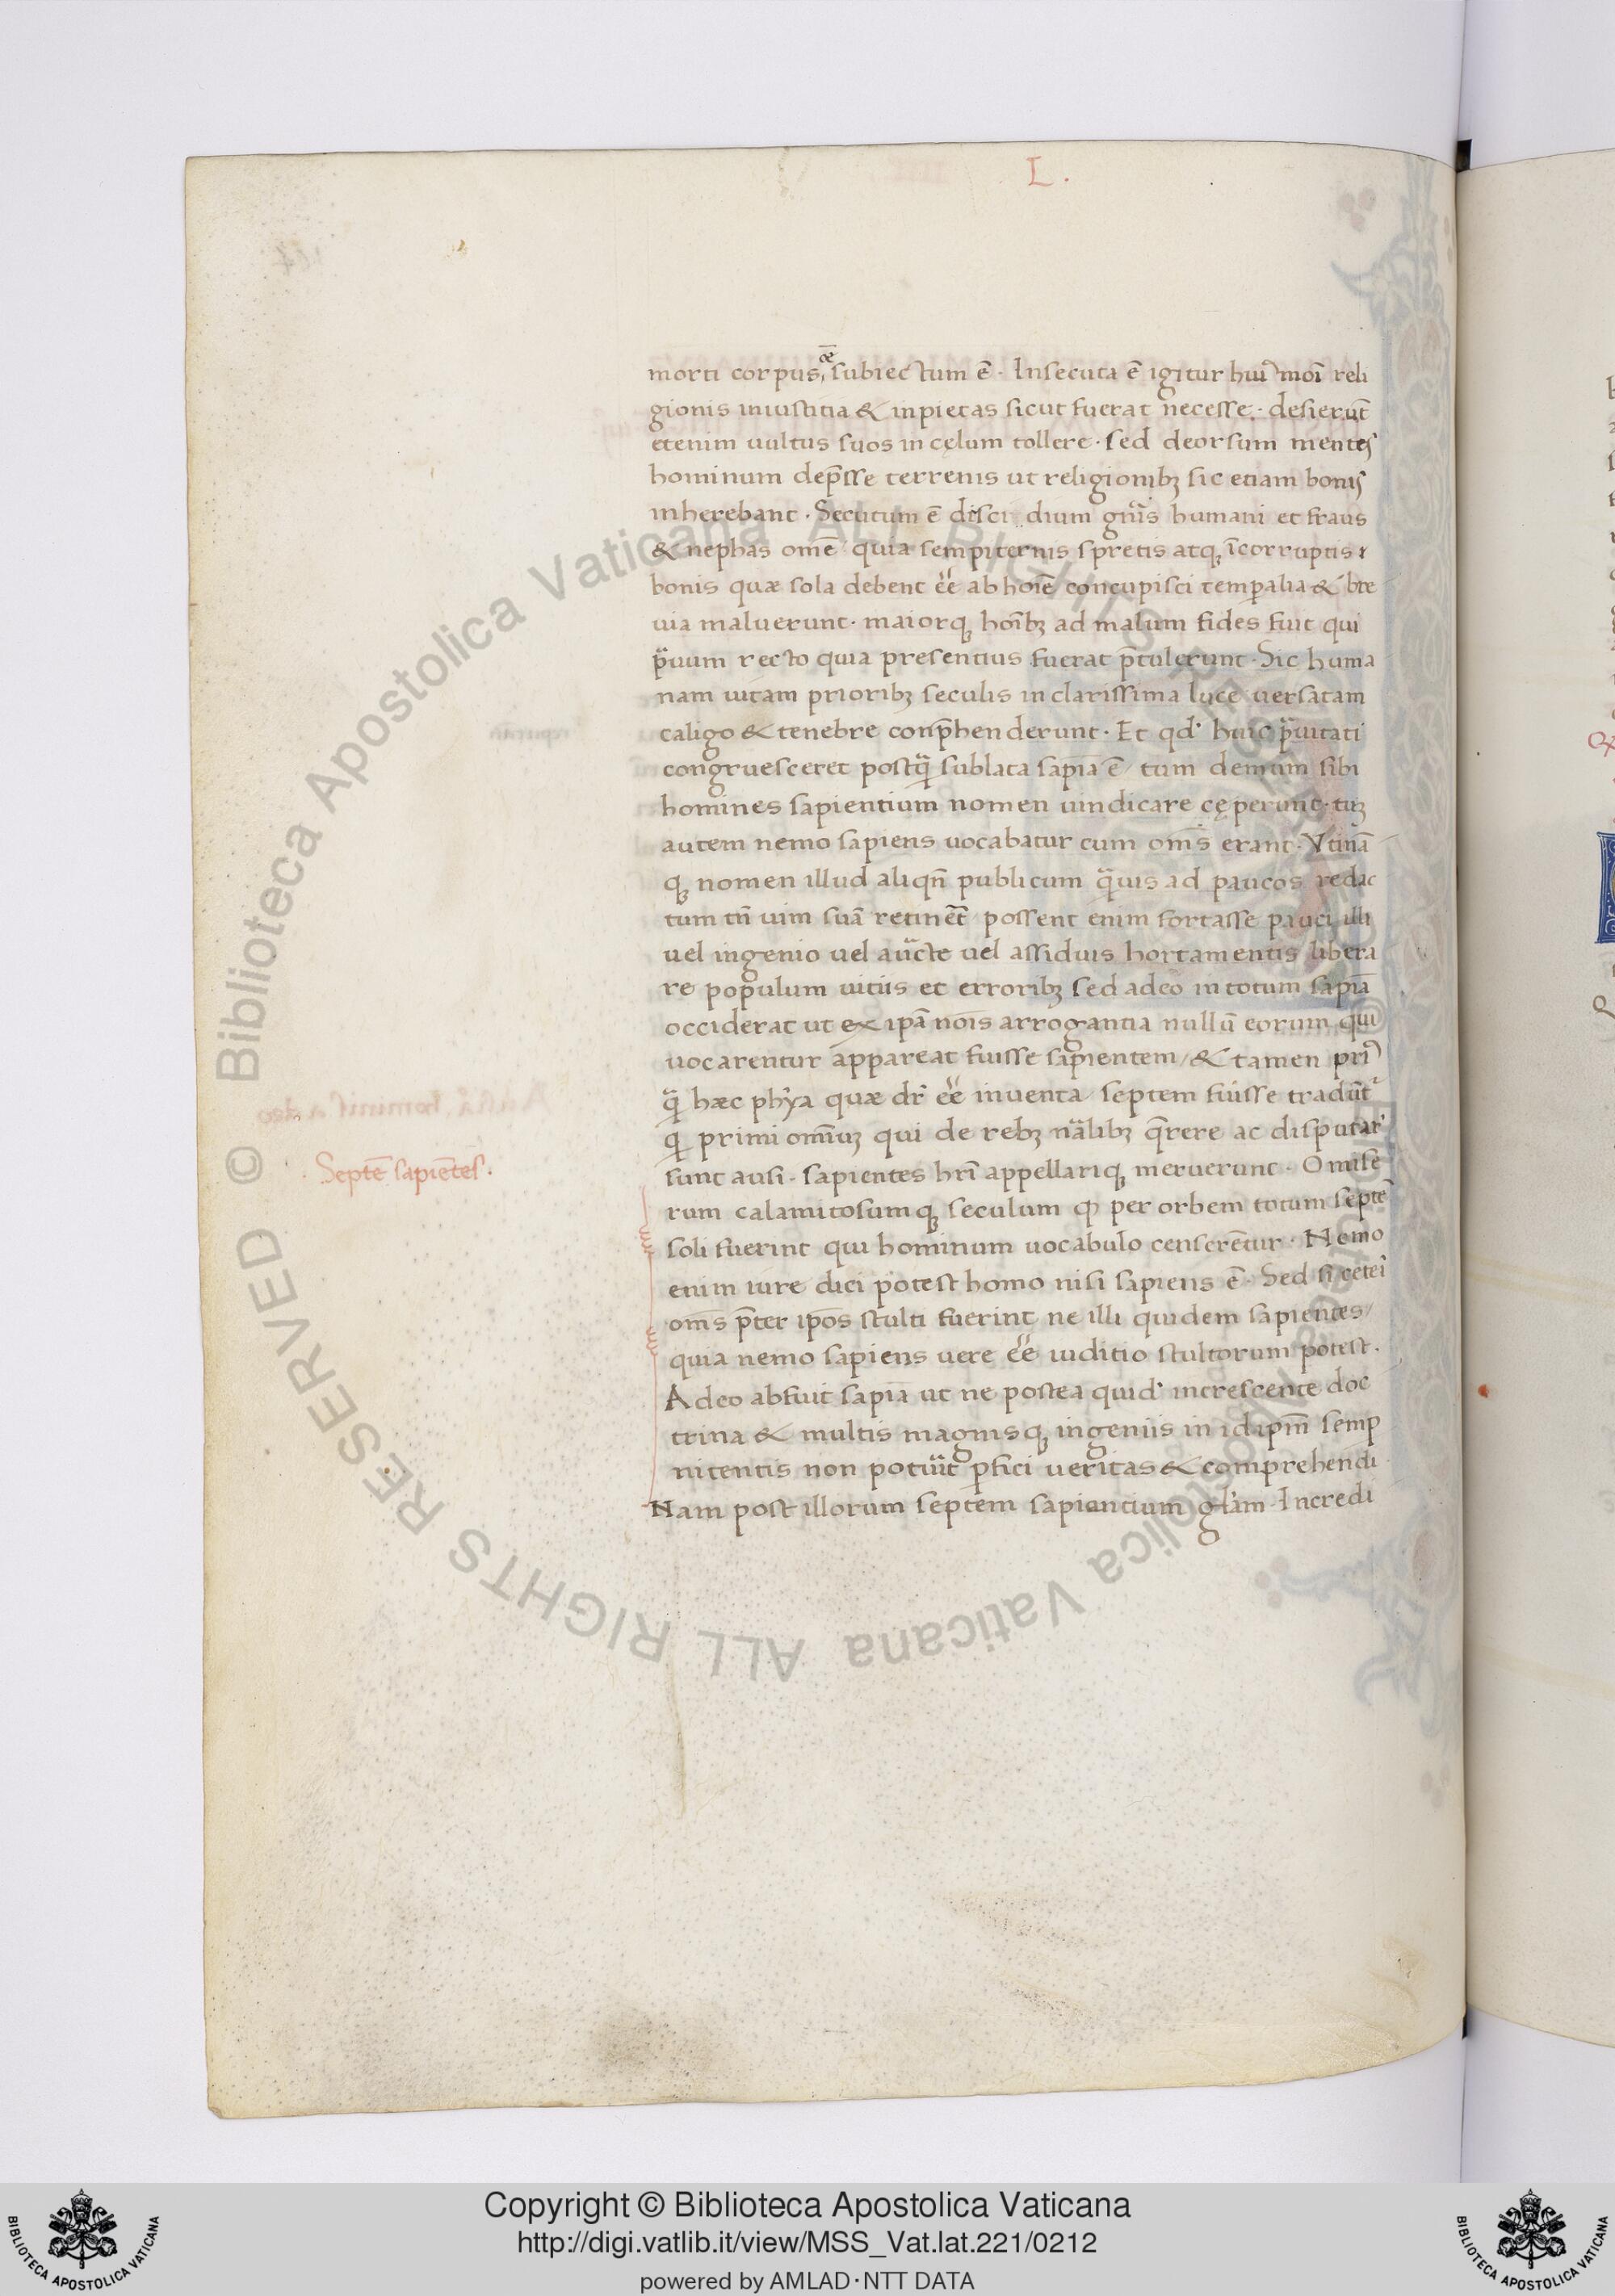 L.
morti corpus, subiectum ē. Insecuta ē igitur huiꝰmoı̄ reli
gionis iniustitia & inpietas sicut fuerat necesse. desierūt
etenim uultus suos in cęlum tollere. sed deorsum mentes
hominum dep̄sse terrenis ut religionibꝫ sic etiam bonis
inherebant. Secutum ē disci dium gn̄is humani et fraus
& nephas om̄e quia sempiternis spretis atqꝫ īcorruptis
bonis quæ sola debent ēē ab hoīe concupisci temꝑalia & bre
uia maluerunt. maiorqꝫ hoībꝫ ad malum fides fuit qui
p̄uum recto quia presentius fuerat p̄tulerunt. Sic huma
nam uitam prioribꝫ seculis in clarissima luce uersatam
caligo & tenebre conp̄henderunt. Et qd' huic p̄uitati
congruesceret postq̄ sublata sapīa ē tum demum sibi
homines sapientium nomen uindicare cęperunt. tūꝫ
autem nemo sapiens uocabatur cum om̄s erant. Vtinā
qꝫ nomen illud aliqn̄ publicum q̄uis ad paucos redac
tum tn̄ uim suā retinēt possent enim fortasse pauci illi
uel ingenio uel aūcte uel assiduis hortamentis libera
re populum uitiis et erroribꝫ sed adeo in totum sapīa
occiderat ut ex ip̄a nōis arrogantia nullū eorum qui
uocarentur appareat fuisse sapientem / & tamen priꝰ
q̄ hæc ph'ya quæ dr̄ ēē inuenta septem fuisse tradūt'
q̄ primi omīuꝫ qui de rebꝫ nālibꝫ q̄rere ac disputar'
Septē sapiētes.
sunt ausi. sapientes hr̄i appellariqꝫ meruerunt. O mise
rum calamitosumqꝫ seculum ꝙ per orbem totum septē
soli fuerint qui hominum uocabulo censerētur. Nemo
enim iure dici potest homo nisi sapiens ē. Sed si ceteī
om̄s p̄ter ip̄os stulti fuerint ne illi quidem sapientes /
quia nemo sapiens uere ēē iuditio stultorum potest.
Adeo abfuit sapīa ut ne postea quid' increscente doc
trina & multis magnisqꝫ ingeniis in id ip̄m semp
nitentis non potūit ꝑfici ueritas & comprehendi
Nam post illorum septem sapientium gl'am. Incredi
Copyright © Biblioteca Apostolica Vaticana
http://digi.vatlib.it/view/MSS_Vat.lat.221/0212
powered by AMLAD·NTT DATA
BIBLIOTECA APOSTOLICA VATICANA
BIBLIOTECA APOSTOLICA VATICANA
© Biblioteca Apostolica Vaticana ALL RIGHTS RESERVED